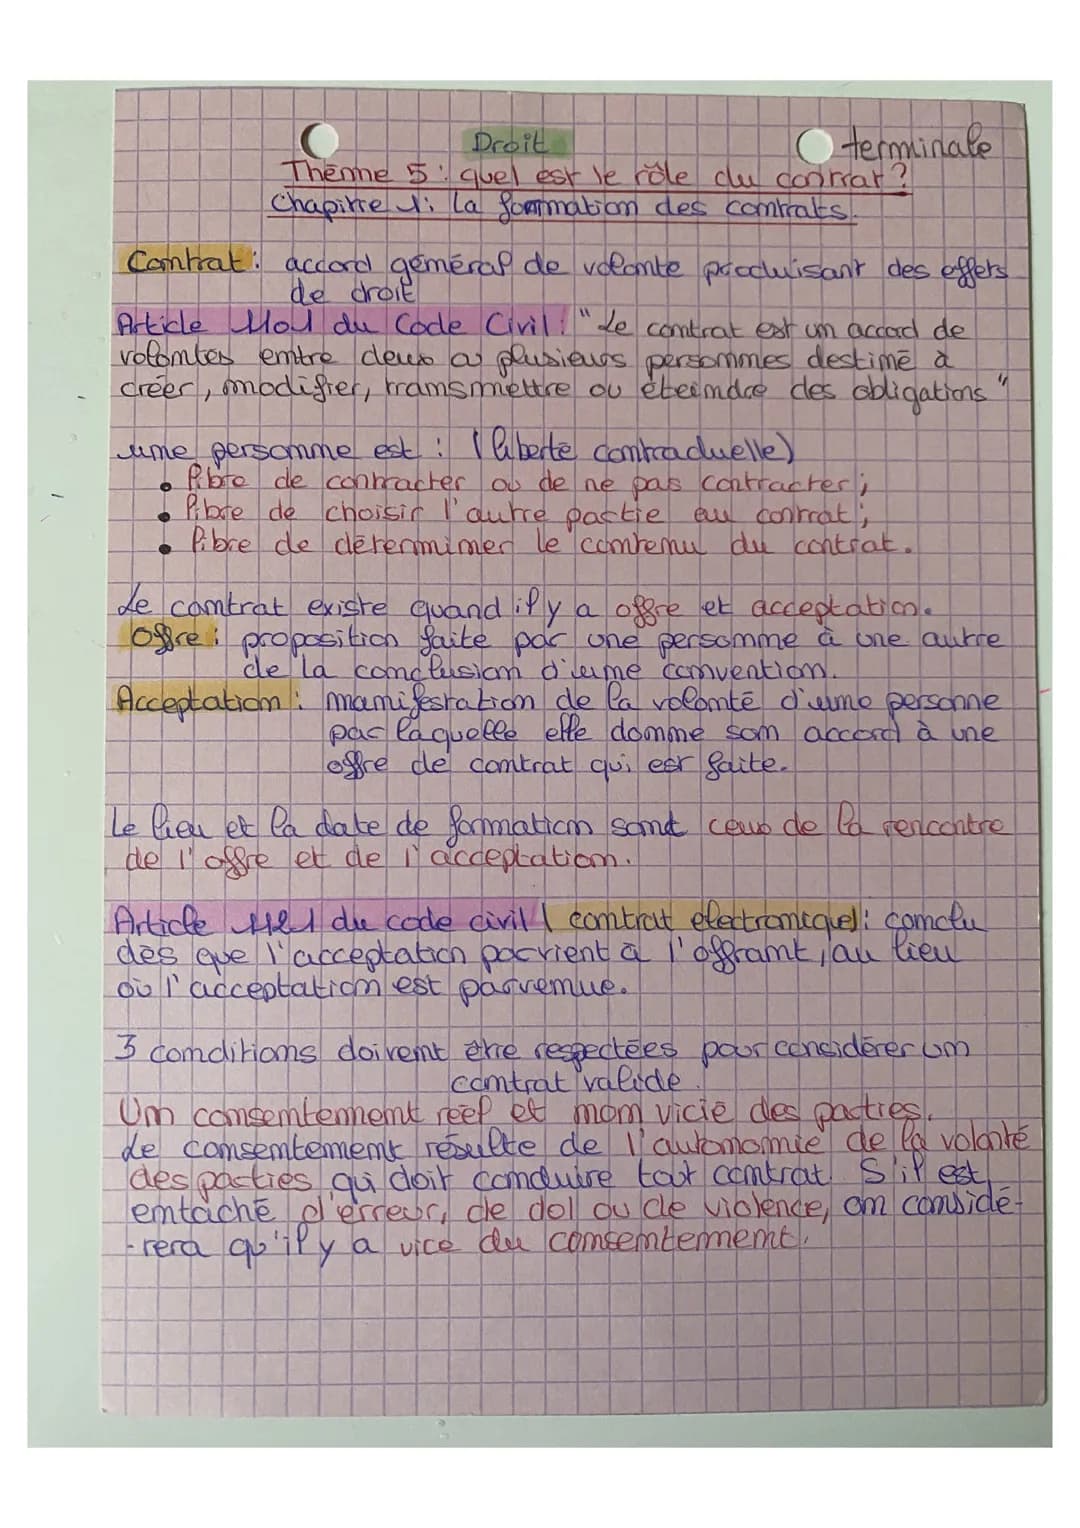 Droit
terminale
Thème 5 : quel est le rôle du contrat ?
Chapitre 1 : La formation des contrats.
Contrat : accord général de volonté produisant des effets
de droit
Article 1101 du Code Civil : "Le contrat est un accord de
volontés entre deux ou plusieurs personnes destiné à
créer, modifier, transmettre ou éteindre des obligations"
une personne est : (liberté contractuelle)
• libre de contracter ou de ne pas contracter ;
• libre de choisir l'autre partie au contrat ;
• libre de déterminer le contenu du contrat.
Le contrat existe quand il y a offre et acceptation.
Offre : proposition faite par une personne à une autre
de la conclusion d'une convention.
Acceptation : manifestation de la volonté d'une personne
par laquelle elle donne son accord à une
offre de contrat qui est faite.
Le lieu et la date de formation sont ceux de la rencontre
de l'offre et de l'acceptation.
Article 1121 du code civil (contrat électronique) : conclu
dès que l'acceptation parvient à l'offrant, au lieu
où l'acceptation est parvenue.
3 conditions doivent être respectées pour considérer un
contrat valide.
Un consentement réel et non vicié des parties.
Le consentement résulte de l'autonomie de la volonté
des parties qui doit conduire tout contrat. S'il est
entaché d'erreur, de dol ou de violence, on considé-
-rera qu'il y a vice du consentement.